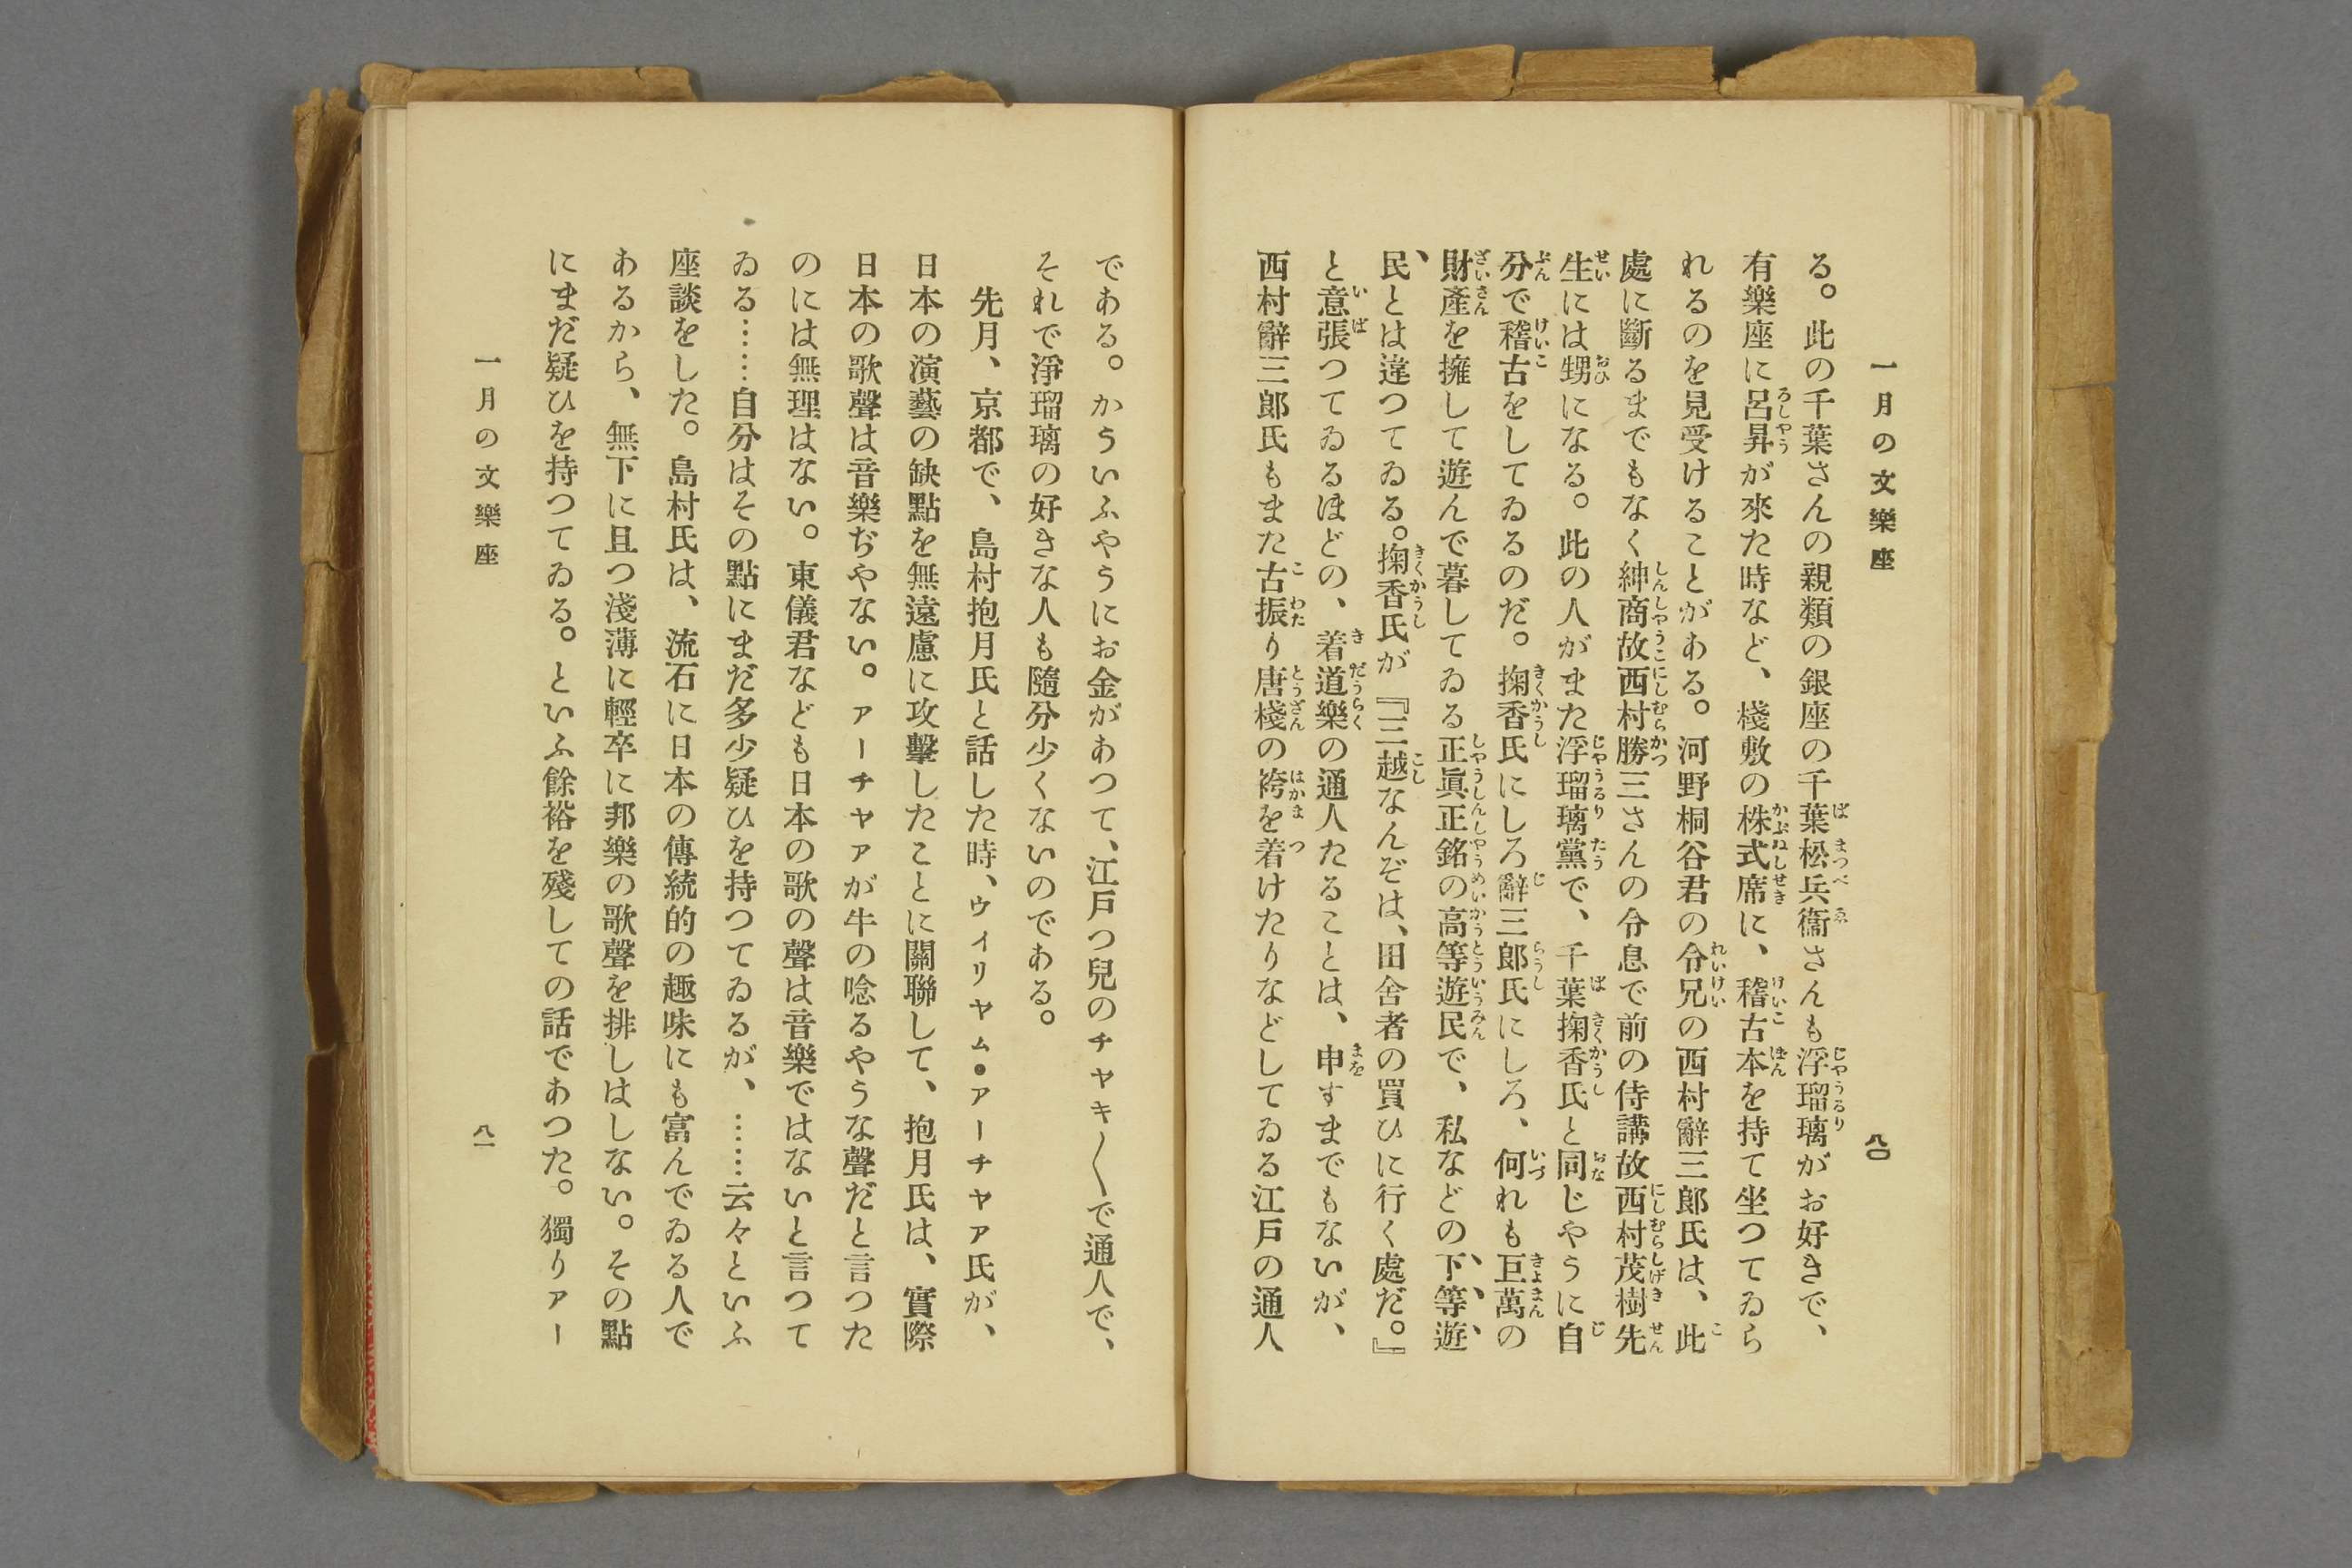 一月の文樂座
八〇
る。此の千葉さんの親類の銀座の千葉松兵衞さんも浮瑠璃がお好きで、
有樂座に呂昇が來た時など、棧敷の株式席に、稽古本を持て坐つてゐら
れるのを見受けることがある。河野桐谷君の令兄の西村辭三郎氏は、此
處に斷るまでもなく紳商故西村勝三さんの令息で前の侍講故西村茂樹先
生には甥になる。此の人がまた浮瑠璃黨で、千葉掬香氏と同じやうに自
分で稽古をしてゐるのだ。掬香氏にしろ辭三郎氏にしろ、何れも巨萬の
財產を擁して遊んで暮してゐる正眞正銘の高等遊民で、私などの下等遊
民とは違つてゐる。掬香氏が『三越なんぞは、田舍者の買ひに行く處だ。』
と意張つてゐるほどの、着道樂の通人たることは、申すまでもないが、
西村辭三郎氏もまた古振り唐棧の袴を着けたりなどしてゐる江戸の通人
である。かういふやうにお金があつて、江戸つ兒のチヤキ〳〵で通人で、
それで淨瑠璃の好きな人も隨分少くないのである。
先月、京都で、島村抱月氏と話した時、ウィリヤム・アーチヤア氏が、
日本の演藝の缺點を無遠慮に攻擊したことに關聯して、抱月氏は、實際
日本の歌聲は音樂ぢやない。アーチヤアが牛の唸るやうな聲だと言つた
のには無理はない。東儀君なども日本の歌の聲は音樂ではないと言つて
ゐる……自分はその點にまだ多少疑ひを持つてゐるが、……云々といふ
座談をした。島村氏は、流石に日本の傳統的の趣味にも富んでゐる人で
あるから、無下に且つ淺薄に輕卒に邦樂の歌聲を排しはしない。その點
にまだ疑ひを持つてゐる。といふ餘裕を殘しての話であつた。獨りアー
一月の文樂座
八一